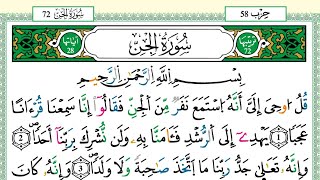 حِزْب 58
سُورَةُ الْجِنّ 72
سُورَةُ الْجِنِّ
آيَاتُهَا 28
72
بِسْمِ اللَّهِ الرَّحْمَٰنِ الرَّحِيمِ
قُلْ أُوحِيَ إِلَيَّ أَنَّهُ اسْتَمَعَ نَفَرٌ مِّنَ الْجِنِّ فَقَالُوا إِنَّا سَمِعْنَا قُرْءَانًا
عَجَبًا 1 يَهْدِي إِلَى الرُّشْدِ فَـَٔامَنَّا بِهِ وَلَن نُّشْرِكَ بِرَبِّنَا أَحَدًا 2
وَإِنَّهُ تَعَالَىٰ جَدُّ رَبِّنَا مَا اتَّخَذَ صَاحِبَةً وَلَا وَلَدًا 3 وَإِنَّهُ كَانَ